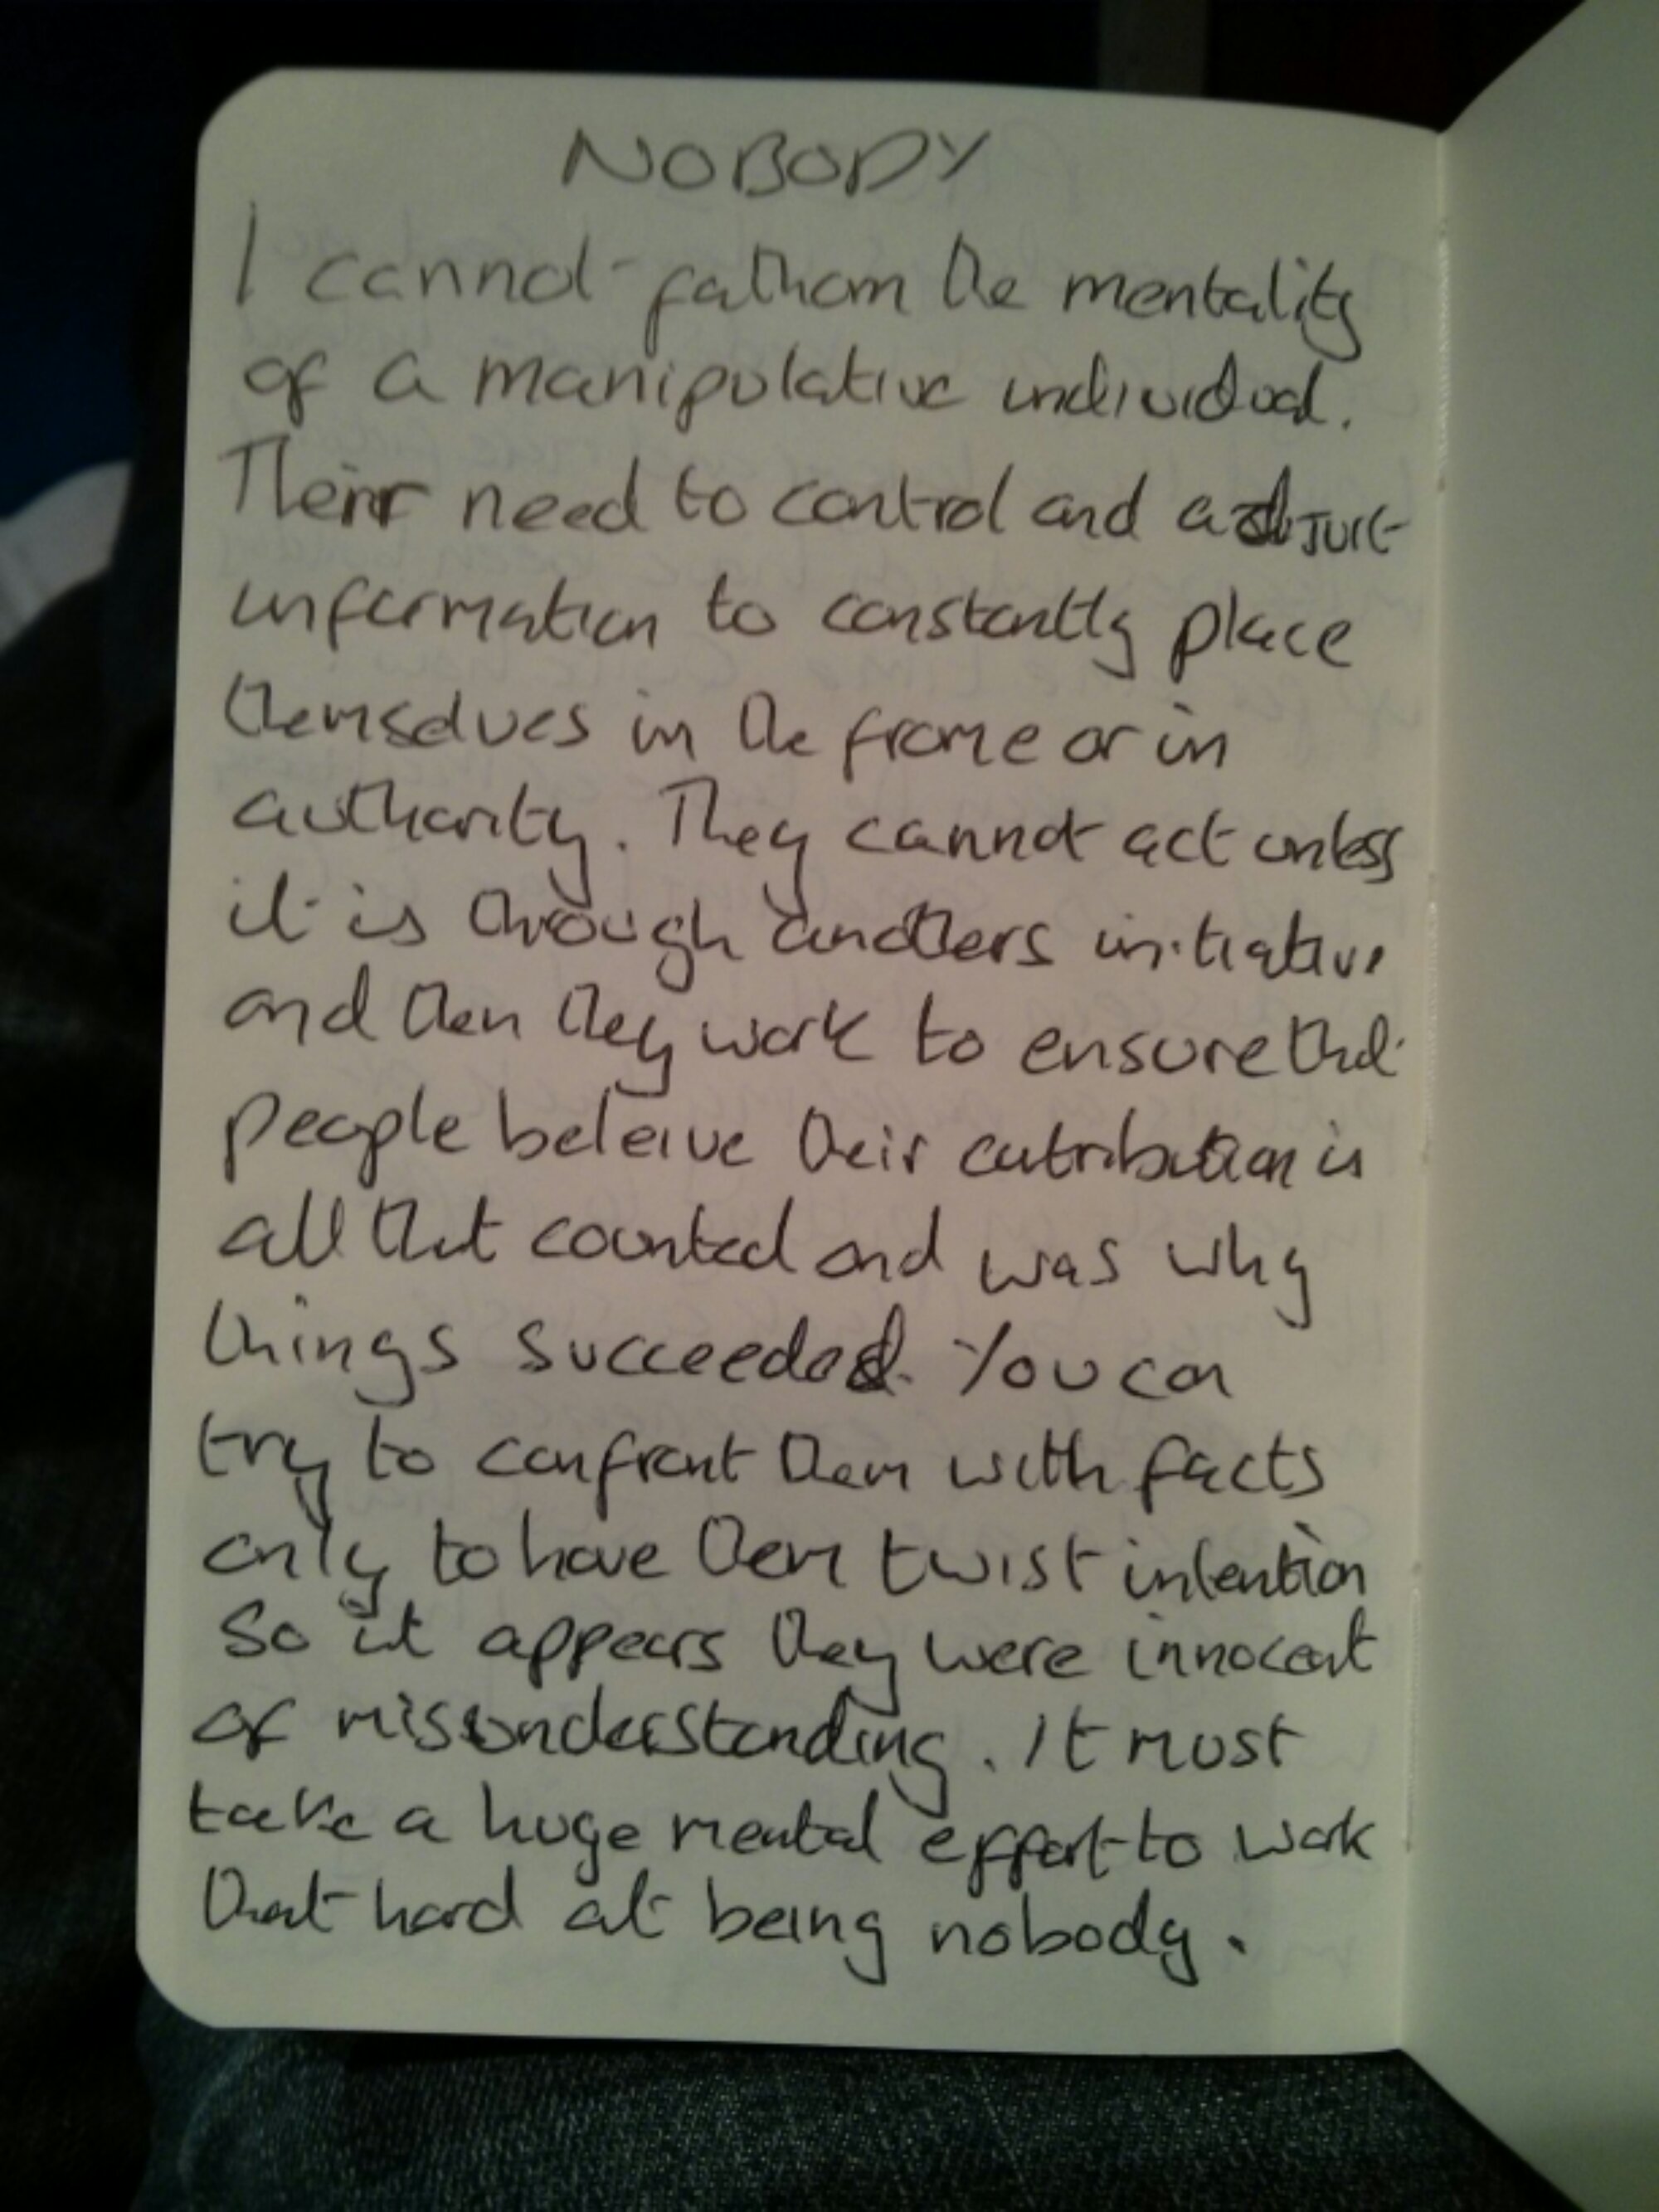 NOBODY
I cannot fathom the mentality
of a manipulative individual.
Their need to control and adjust
information to constantly place
themselves in the frame or in
authority. They cannot act unless
it is through anothers initiative
and then they work to ensure that
people beleive their cutribution is
all that counted and was why
things succeeded. You can
try to confront them with facts
only to have them twist intention
so it appears they were innocent
of misunderstanding. It must
take a huge mental effort to work
that hard at being nobody.